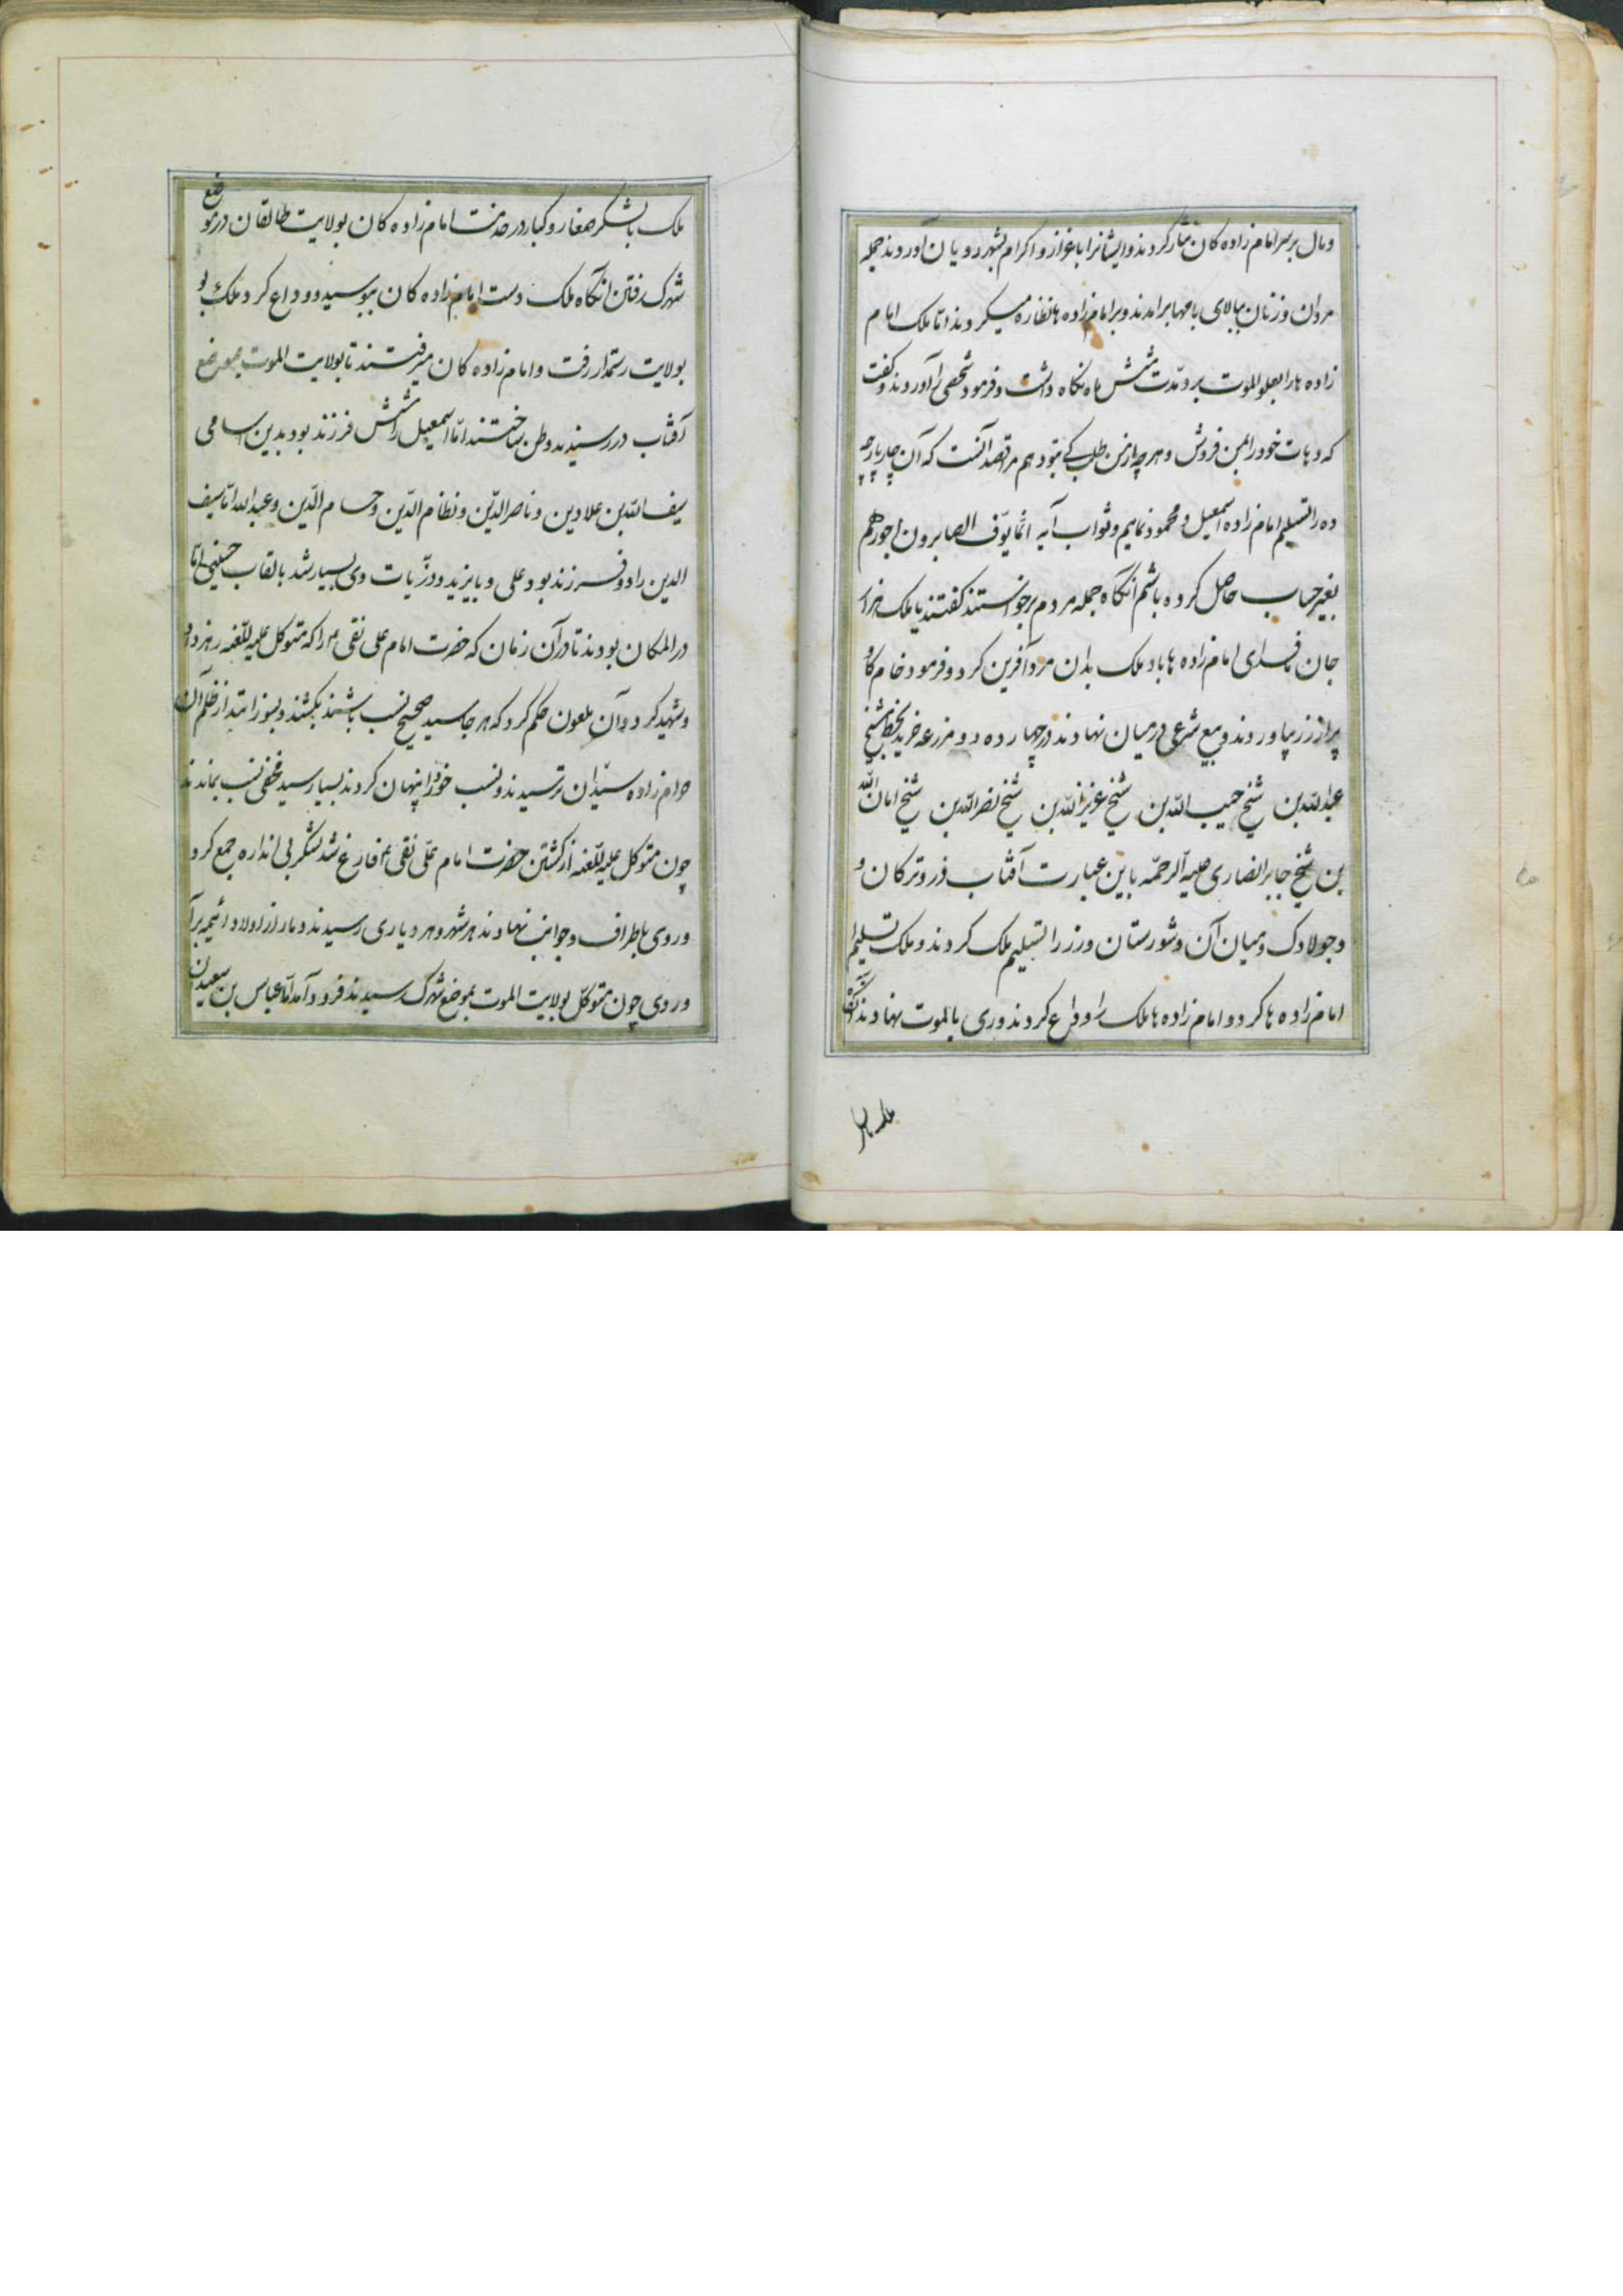 و مال بر سر امام زاده کان نثار کردند و ایشانرا باعزاز و اکرام بشهر رویان آوردند جمله
مردان و زنان ببالای بامها برامدند و بر امام زاده ها نظاره میکردند اما ملک امام
زاده ها را بعلو الموت برد و مدّت شش ماه نگاه داشت و فرمود شخصی را آوردند و گفت
که دهات خود را بمن فروش و هر چه از من طلب کنی بتو دهم مرا قصد آنست که آن چارپارچه
ده را تسلیم امام زاده اسمعیل و محمود نمایم و ثواب آیه انّما یوّف الصابرون اجورهم
بغیر حساب حاصل کرده باشم انگاه جمله مردم برخواستند گفتند یا ملک هزار
جان ما فدای امام زاده ها باد ملک بدان مرد آفرین کرد و فرمود خام گاو
پر از زر بیاوردند و بیع شرعی در میان نهادند و چهارده دو مزرعه خرید بخط شیخ
عبدالله بن شیخ حبیب الله بن شیخ عزیز الله بن شیخ نصر الله بن شیخ امان الله
بن شیخ جابر انصاری علیه الرحمّه باین عبارت آفتاب در و ترکان و
و جولادک و میان آن و شورستان و زر را تسلیم ملک کردند و ملک تسلیم
امام زاده ها کرد و امام زاده ها ملک را وداع کردند و روی بالموت نهادند انگاه
ملک با لشکر
ملک با لشکر صغار و کبار در خدمت امام زاده کان بولایت طالقان در موضع
شهرک رفتن انگاه ملک دست امام زاده کان ببوسید و وداع کرد ملک
بولایت رستمدار رفت و امام زاده کان میرفتند تا بولایت الموت بموضع
آفتاب در رسیدند و وطن ساختند امّا اسمعیل را شش فرزند بود بدین اسامی
سیف الله بن علادین و ناصر الدّین و نظام الدّین و حسام الدّین و عبدالله امّا سیف
الدین را دو فرزند بود علی و بایزید و ذرّیات وی بسیار شد بالقاب حسینی امّا
در المکان بودند تا در آن زمان که حضرت امام علی نقی ع را که متوکل علیه اللّعنه زهر داد
و شهید کرد و آن ملعون حکم کرد که هر جا سید صحیح نسب باشند بکشند و بسوزانند از ظلم آن
حرام زاده سیّدان ترسیدند و نسب خود را پنهان کردند بسیار سید مخفی نسب بماندند
چون متوکل علیه اللّعنه از کشتن حضرت امام علّی نقی ع فارغ شد لشکر بی اندازه جمع کرد
و روی باطراف و جوانب نهادند هر شهر و هر دیاری رسیدند دمار از اولاد ائیمه برآ
وردی چون متوکّل بولایت الموت بموضع شهرک رسیدند فرود آمد امّا عباس بن سعید